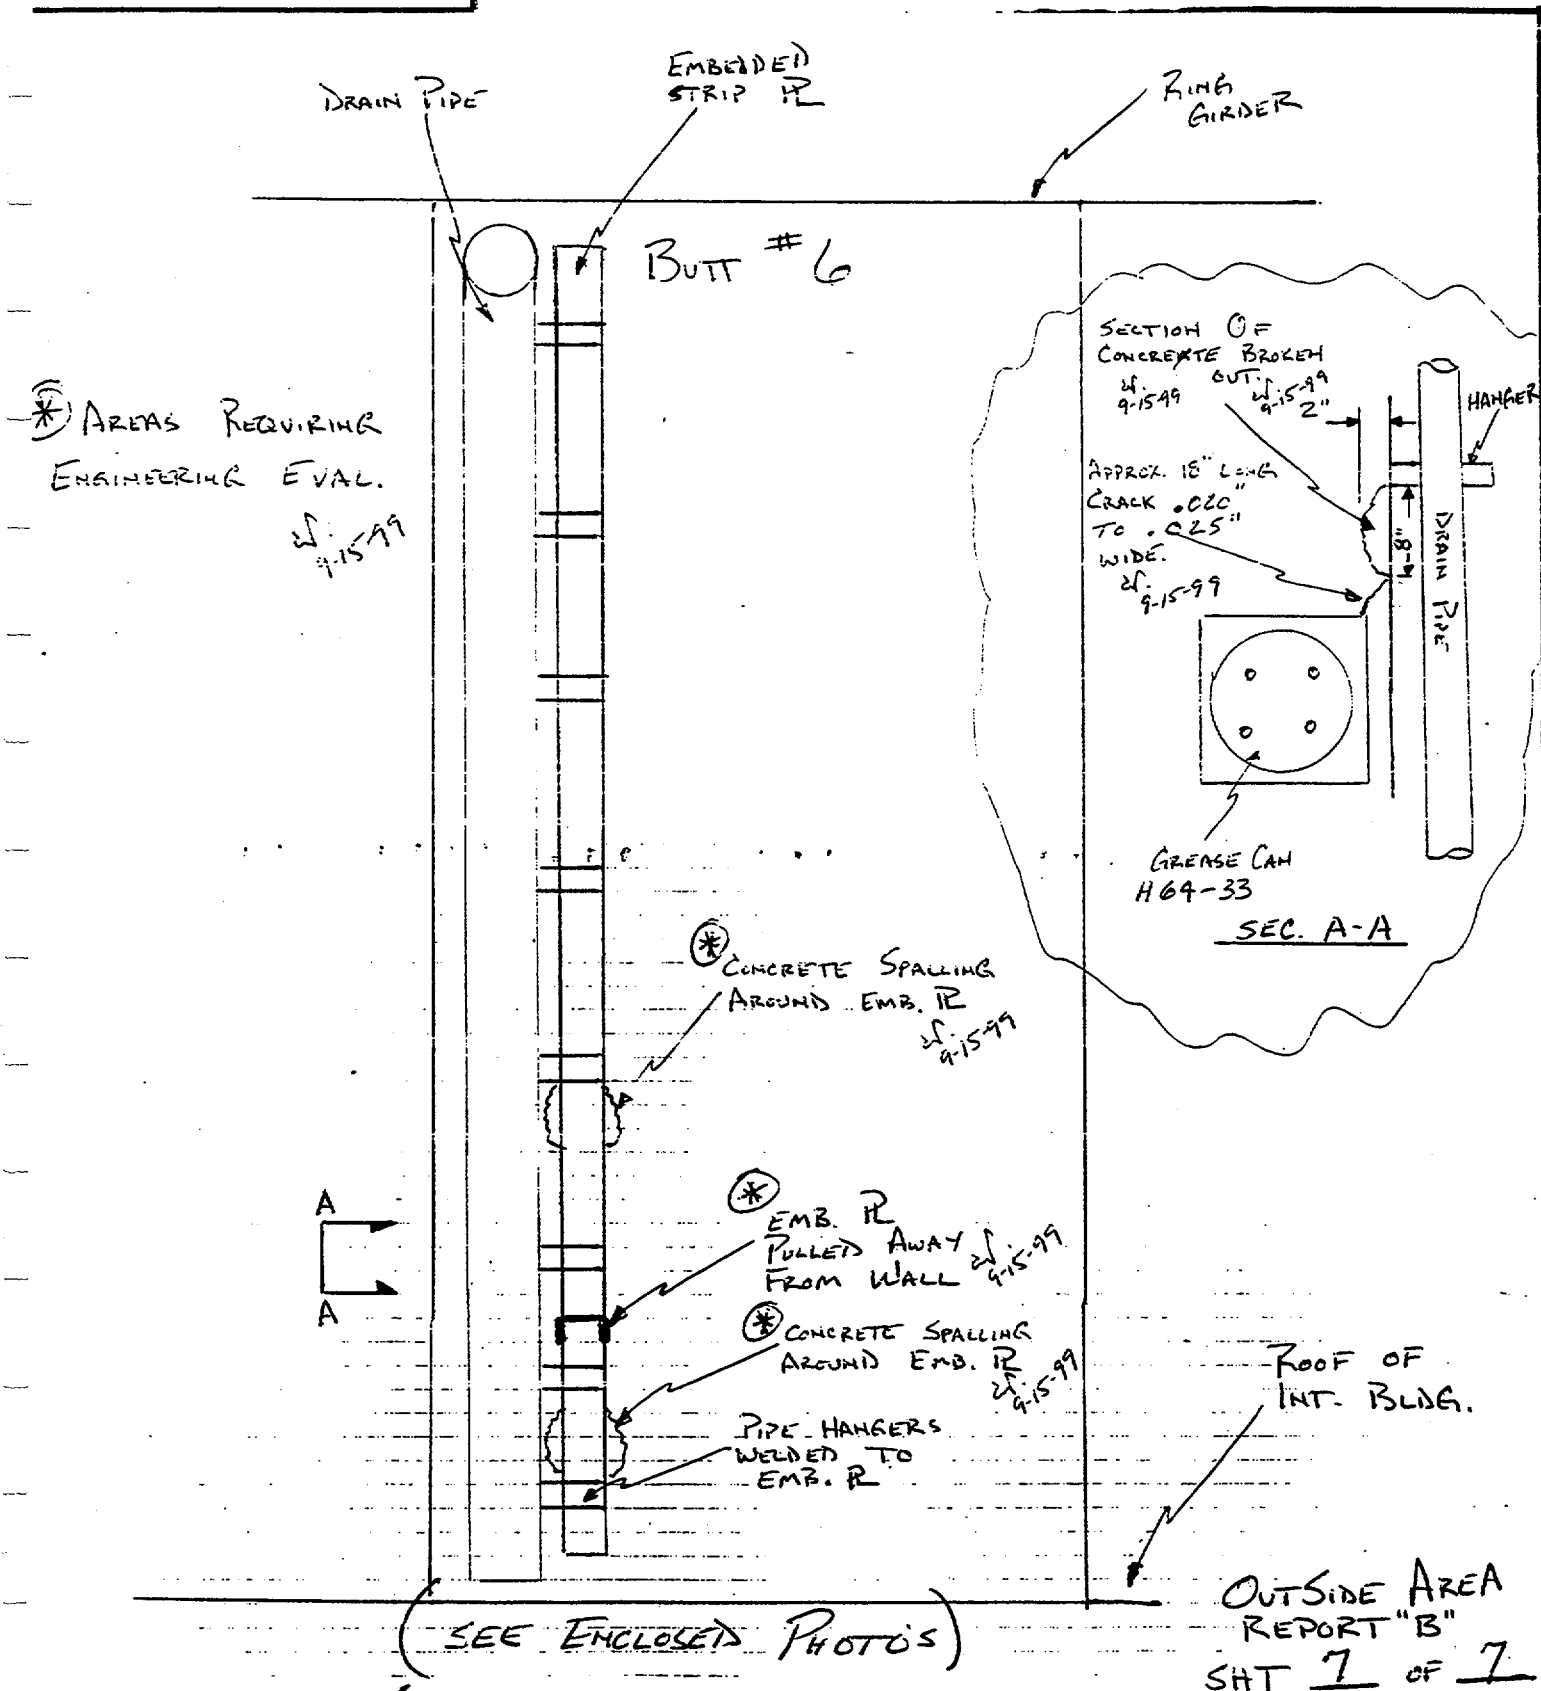 DRAIN PIPE
EMBEDDED
STRIP PL
RING
GIRDER
BUTT #6
* AREAS REQUIRING
ENGINEERING EVAL.
9-15-99
SECTION OF
CONCRETE BROKEN
OUT.
9-15-99
9-15-99
2"
HANGER
APPROX. 18" LONG
CRACK .020"
TO .025"
WIDE.
9-15-99
8"
DRAIN PIPE
GREASE CAN
H64-33
SEC. A-A
* CONCRETE SPALLING
AROUND EMB. PL
9-15-99
A
A
*
EMB. PL
PULLED AWAY
FROM WALL
9-15-99
* CONCRETE SPALLING
AROUND EMB. PL
9-15-99
PIPE HANGERS
WELDED TO
EMB. PL
ROOF OF
INT. BLDG.
(SEE ENCLOSED PHOTO'S)
OUTSIDE AREA
REPORT "B"
SHT 7 OF 7